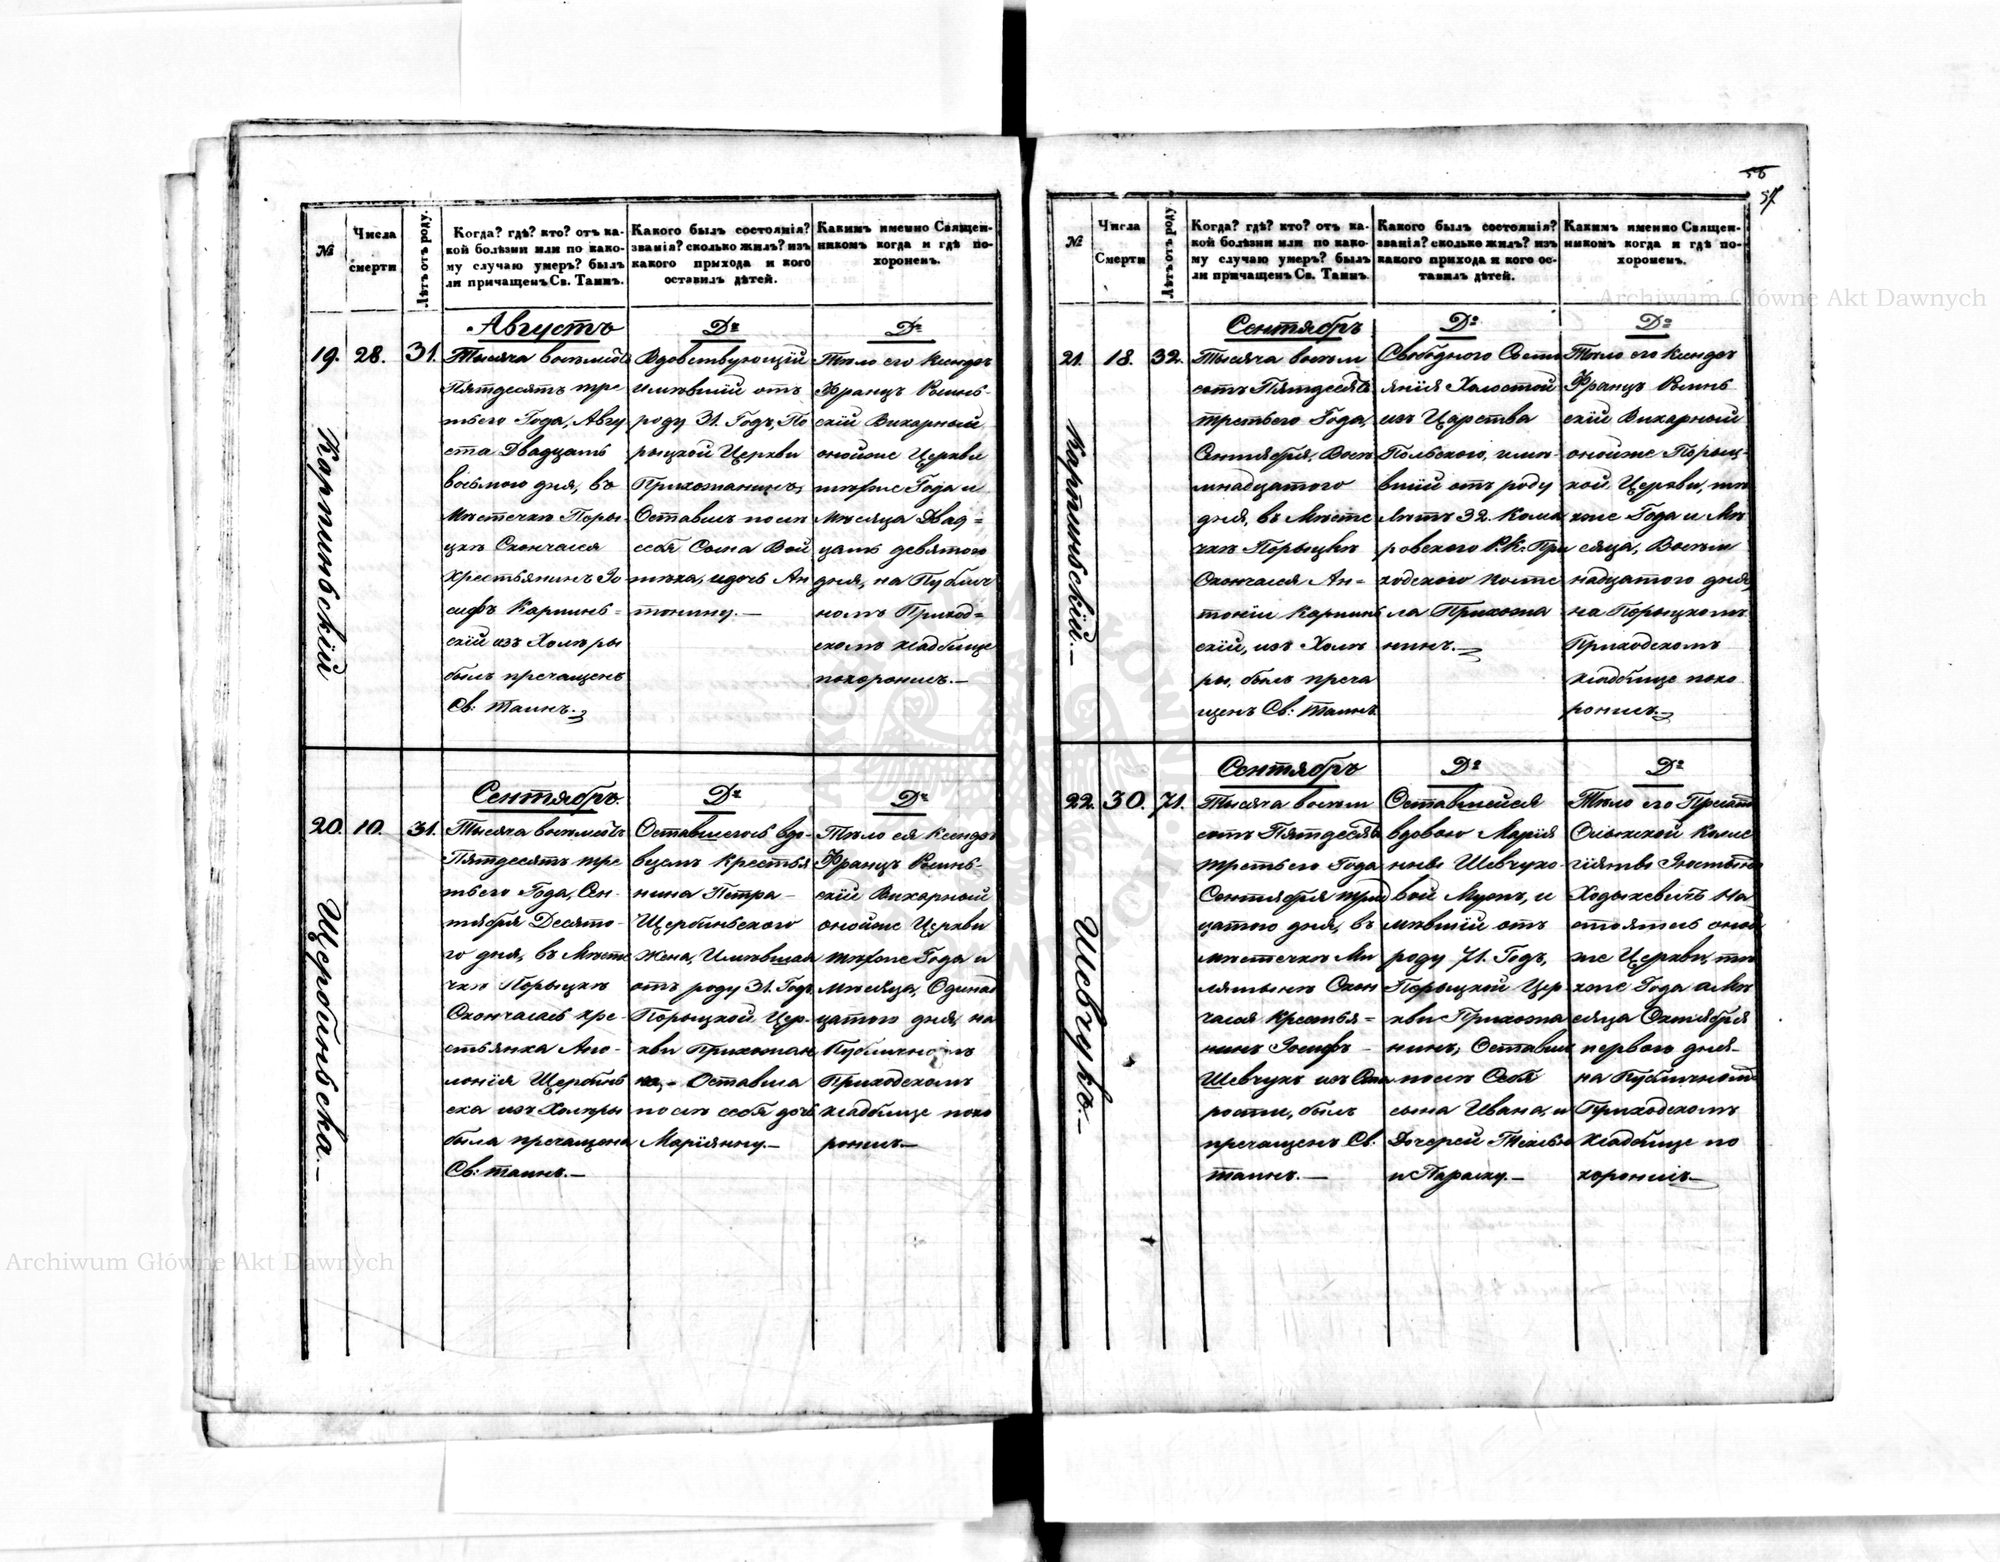 №
Числа
смерти
Лѣтъ отъ роду.
Когда? гдѣ? кто? отъ ка-
кой болѣзни или по како-
му случаю умеръ? былъ
ли причащенъ Св. Таинъ.
Какого былъ состоянія?
званія? сколько жилъ? изъ
какого прихода и кого
оставилъ дѣтей.
Какимъ именно Священ-
никомъ когда и гдѣ по-
хороненъ.
19.
28.
31.
Карпиньскій
Августъ
Тысяча восемьсотъ
Пятдесятъ тре
тьего Года, Авгу
ста Двадцать
восьмого дня, въ
Мѣстечкѣ Поры
цкѣ Скончался
Крестьянинъ Іо
сифъ Карпинь-
скій изъ Холѣры
былъ пречащенъ
Св: Таинъ.
Дº
Вдовствующій
имѣвшій отъ
роду 31. Годъ, По
рыцкой Церкви
Прихожанинъ,
Оставилъ послѣ
себя Сына Вой
тѣха, и дочь Ан
тонину.—
Дº
Тѣло его Ксендзъ
Францъ
скій Викарный
онойже Церкви
тѣхже Года и
Мѣсяца Двад=
цать девятого
дня, на Публич
номъ Приход=
скомъ кладбище
похоронилъ.—
20.
10.
31.
Щербиньска.—
Сентябрь
Тысяча восемьсотъ
Пятдесятъ тре
тьего Года, Сен-
тября Десято-
го дня, въ Мѣсте
чкѣ Порыцкѣ
Скончалась кре-
стьянка Апо-
лонія Щербинь
ска изъ Холѣры
была пречащена
Св: таинъ.—
Дº
Оставшегось вдо-
вцемъ Крестья
нина Петра
Щербиньского
Жена, Имѣвшая
отъ роду 31. Годъ
Порыцкой Цер-
кви Прихожан
ка,- Оставила
послѣ себя дочь
Маріянну.—
Дº
Тѣло ея Ксендзъ
Францъ
скій Викарный
онойже Церкви
тѣхже Года и
Мѣсяца, Одинад
цатого дня, на
Публичномъ
Приходскомъ
кладбище похо
ронилъ.—
57
№
Числа
Смерти
Лѣтъ отъ роду
Когда? гдѣ? кто? отъ ка-
кой болѣзни или по како-
му случаю умеръ? былъ
ли причащенъ Св. Таинъ.
Какого былъ состоянія?
званія? сколько жилъ? изъ
какого прихода и кого ос-
тавилъ дѣтей.
Какимъ именно Священ-
никомъ когда и гдѣ по-
хороненъ.
21.
18.
32.
Карпиньскій.—
Сентябрь
Тысяча восемь
сотъ Пятдесятъ
третьего Года,
Сентября, Восе
мнадцатого
дня, въ Мѣсте
чкѣ Порыцкѣ
Скончался Ан-
тоній Карпинь
скій, изъ Холѣ
ры, былъ преча
щенъ Св: Таинъ.
Дº
Свободного Состо
янія Холостой
изъ Царства
Польского, имѣ
вшій отъ роду
Лѣтъ 32. Кома
ровского Р.К. При
ходского Косте
ла Прихожа
нинъ.
Дº
Тѣло его Ксендзъ
Францъ
скій Викарный
онойже Порыц-
кой Церкви, тѣ
хже Года и Мѣ
сяца, Восемь
надцатого дня,
на Порыцкомъ
Приходскомъ
кладбище похо
ронилъ.
22.
30.
71.
Шевчукъ.—
Сентябрь
Тысяча восемь
сотъ Пятдесятъ
третьего Года
Сентября трид
цатого дня, въ
мѣстечкѣ Ми
лятынѣ Скон
чался Крестья=
нинъ Іосифъ
Шевчукъ изъ Ста
рости, былъ
пречащенъ Св.
таинъ.—
Дº
Оставшейся
вдовою Марія
нны Шевчуко-
вой Мужъ, и
мѣвшій отъ
роду 71. Годъ,
Порыцкой Цер-
кви Прихожа
нинъ, Оставилъ
послѣ Себя
сына Ивана, и
Дочерей Теклю
и Параску.—
Дº
Тѣло его Прелатъ
Олыжской Колле
гіяты
Ходыкевичъ На
стоятель оной
же Церкви, тѣ
хже Года а Мѣ
сяца Октября
первого дня
на Публичномъ
Приходскомъ
кладбище по
хоронилъ—
Archiwum Główne Akt Dawnych
Archiwum Główne Akt Dawnych